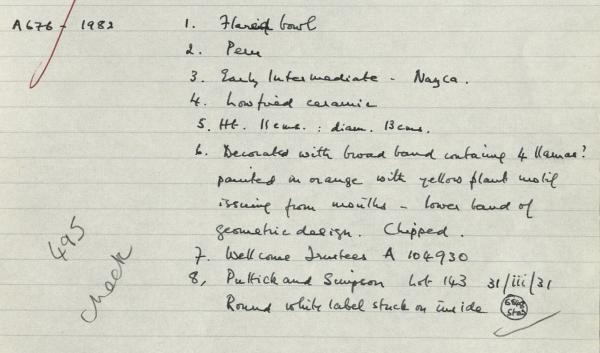 A676 - 1982
1. Flared bowl
2. Peru
3. Early Intermediate - Nazca.
4. Low fired ceramic
5. Ht. 11 cms. : diam. 13 cms.
6. Decorated with broad band containing 4 llamas?
painted in orange with yellow plant motif
issuing from mouths - lower band of
geometric design. Chipped.
7. Wellcome Trustees A 104930
8, Puttick and Simpson Lot 143 31/iii/31
Round white label stuck on inside
495
check